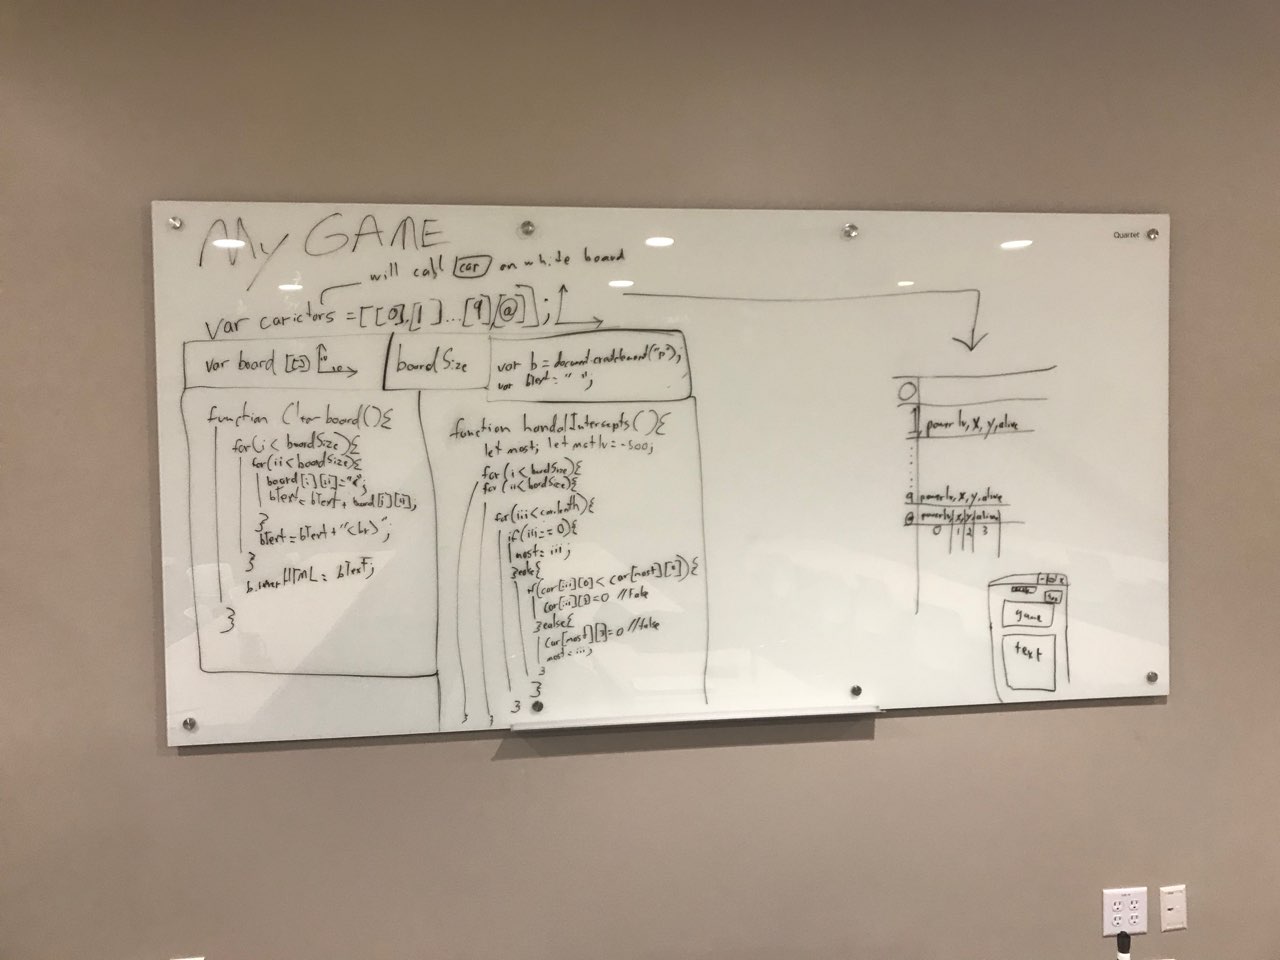 My GAME
Quartet
will call car on white board
var carictors = [[0],[1]...[9][@]];
var board [[]]
boardSize
var b = document.createElement("p");
var bText = " ";
function Clearboard(){
for(i < boardSize){
for(ii < boardSize){
board[i][ii]=" ";
bText = bText + board[i][ii];
}
bText = bText + "<br>";
}
b.innerHTML = bText;
}
function handalIntersepts(){
let most; let mostlv = -500;
for(i < boardSize){
for(ii < boardSize){
for(iii < car.length){
if(iii == 0){
most = iii;
}else{
if(car[iii][0] < car[most][0]){
car[iii][3] = 0 //False
}else{
car[most][3] = 0 //false
most = iii;
}
}
}
}
}
0
1 power lv, x, y, alive
9 power lv, x, y, alive
@ power lv x y alive
0 1 2 3
- □ x
game
text